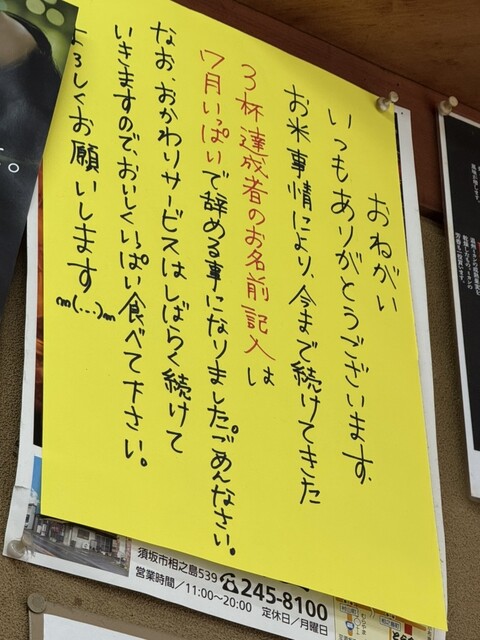 おねがい
いつもありがとうございます。
お米事情により、今まで続けてきた
3杯達成者のお名前記入は
7月いっぱいで辞める事になりました。ごめんなさい。
なお、おかわりサービスはしばらく続けて
いきますので、おいしくいっぱい食べて下さい。
よろしくお願いします m(...)m
須坂市相之島539 ☎245-8100
営業時間/11:00〜20:00 定休日/月曜日